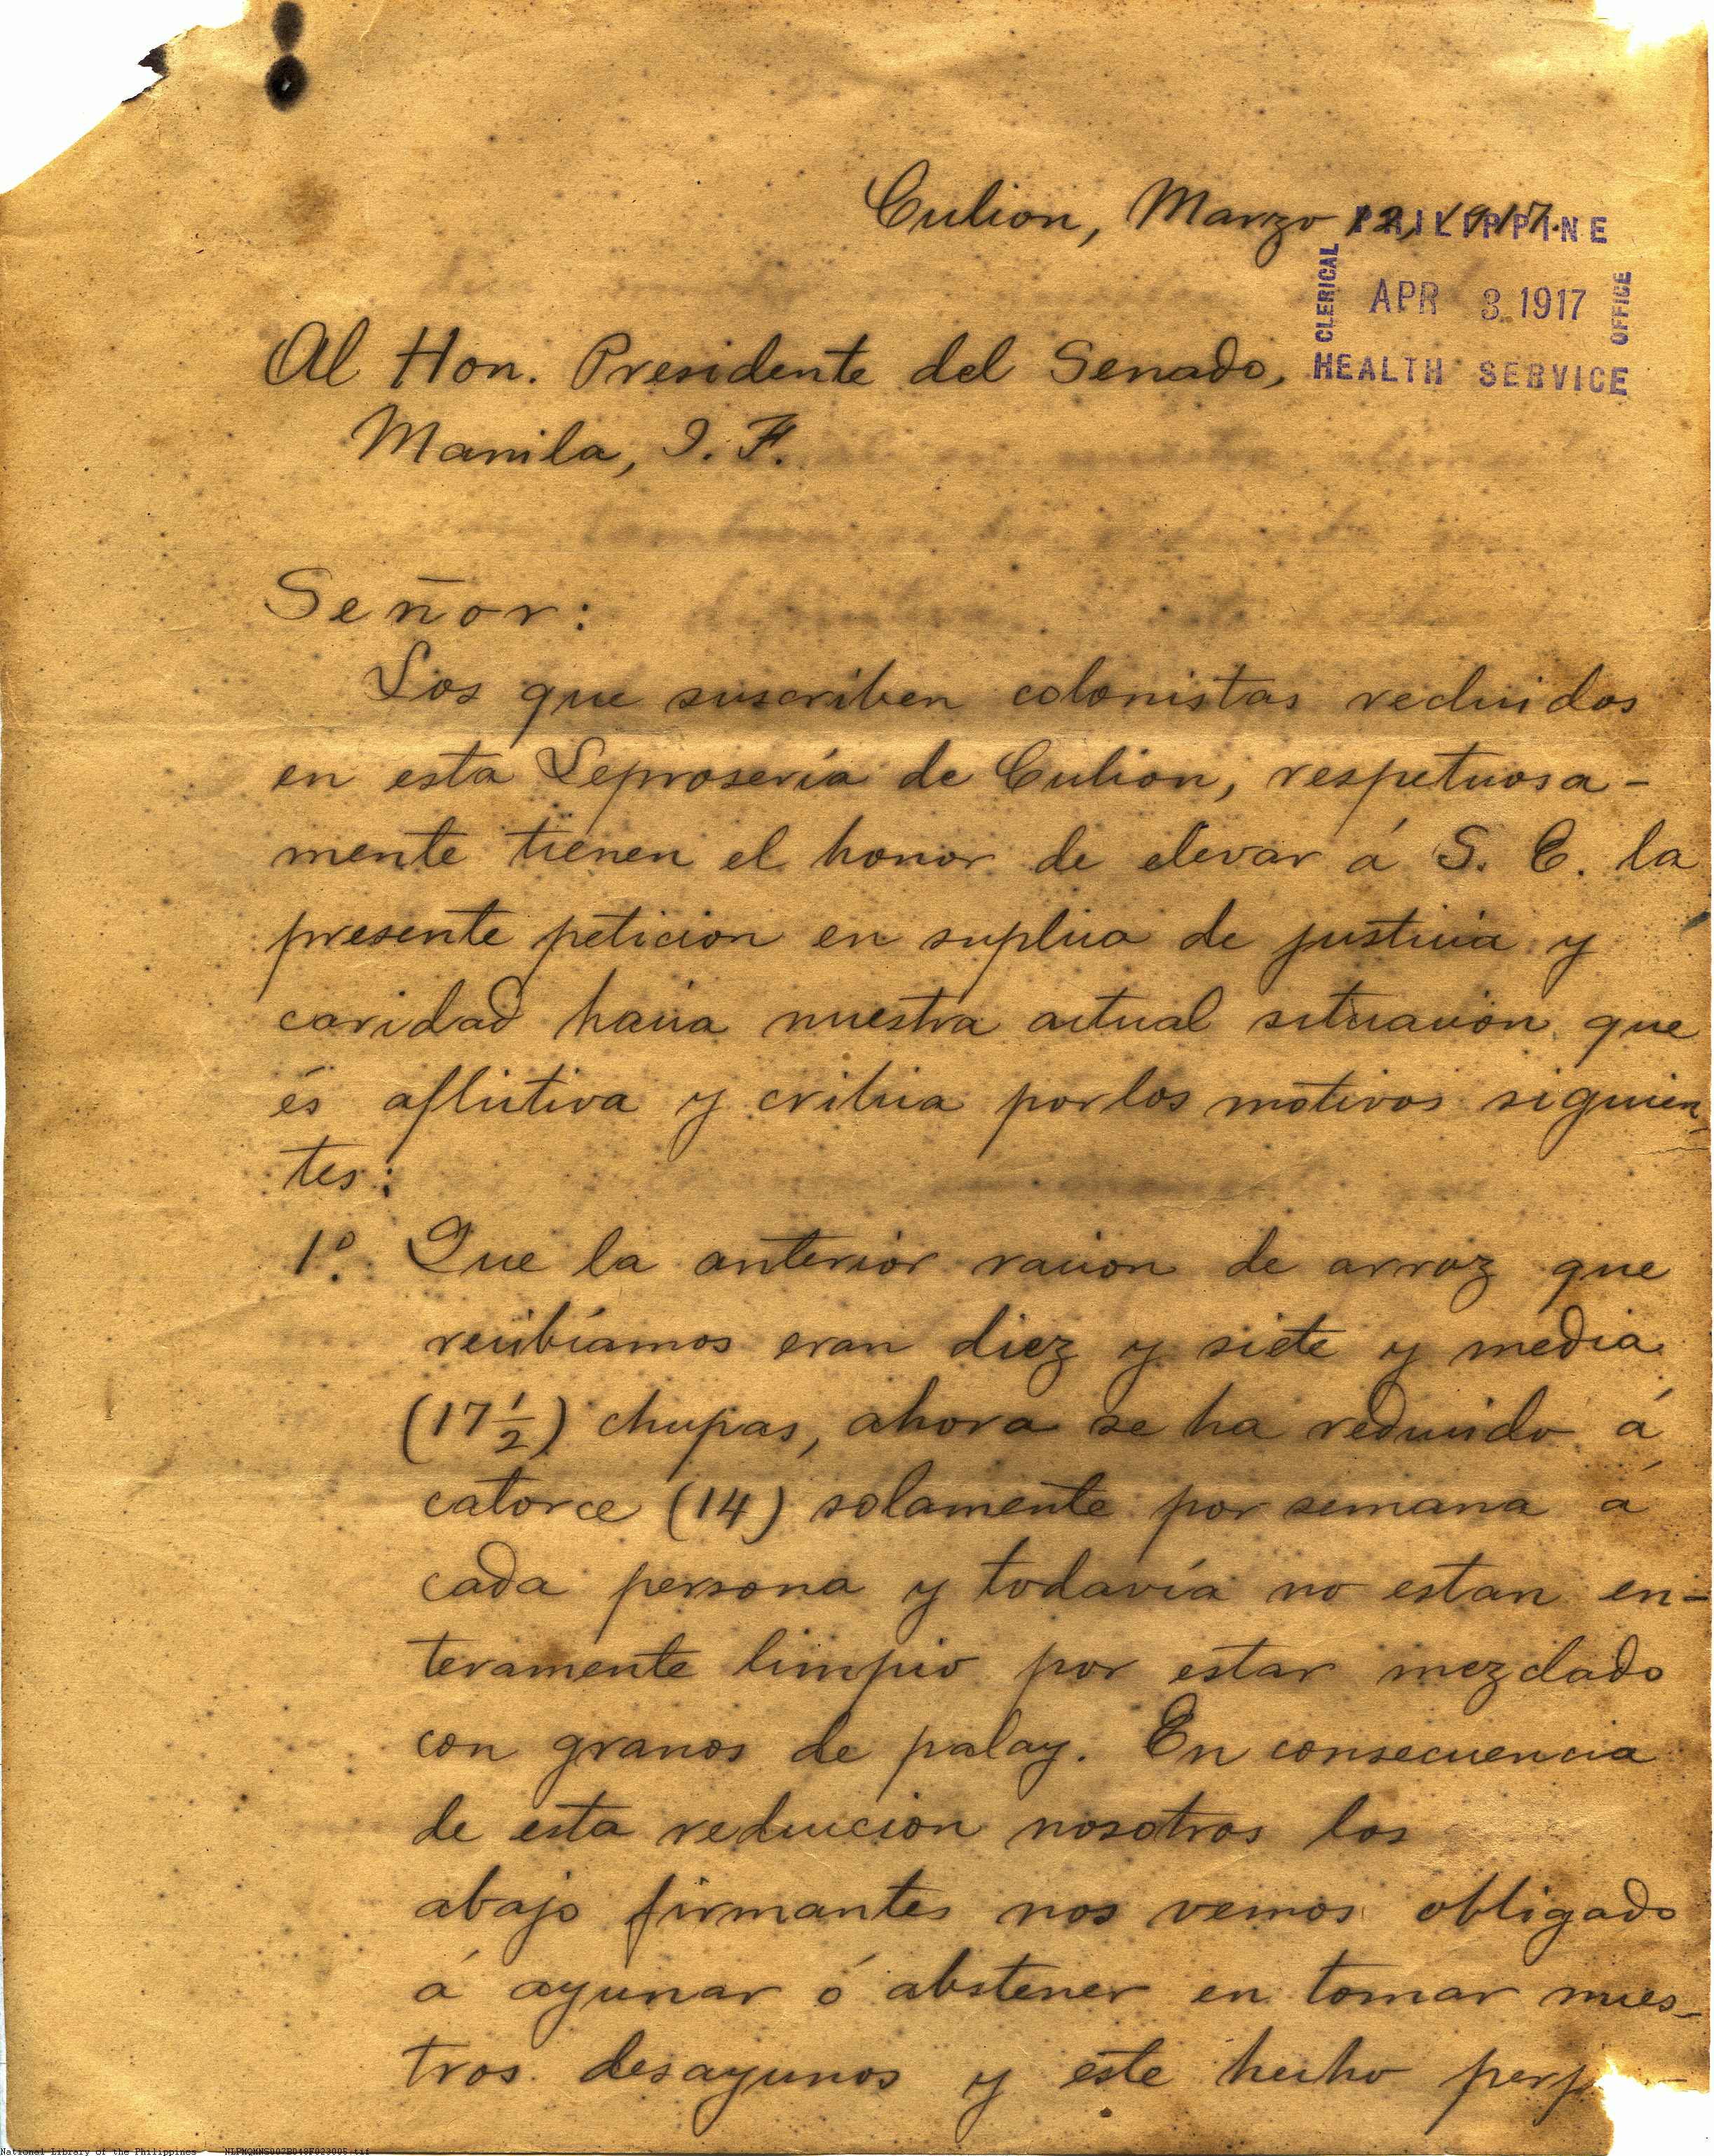 Culion, Marzo 12, 1917.
PHILIPPINE
CLERICAL
APR 3 1917
OFFICE
HEALTH SERVICE
Al Hon. Presidente del Senado,
Manila, I. F.
Señor:
Los que suscriben colonistas recluidos
en esta Leprosería de Culion, respetuosa-
mente tienen el honor de elevar á S. E. la
presente peticion en suplica de justicia y
caridad hacia nuestra actual situacion que
és aflictiva y critica por los motivos siguien-
tes:
1º. Que la anterior racion de arroz que
recibíamos eran diez y siete y media
(17 1/2) chupas, ahora se ha reducido á
catorce (14) solamente por semana á
cada persona y todavía no estan en-
teramente limpio por estar mezclado
con granos de palay. En consecuencia
de esta reduccion nosotros los
abajo firmantes nos vemos obligado
á ayunar ó abstener en tomar nues-
tros desayunos y este hecho
National Library of the Philippines